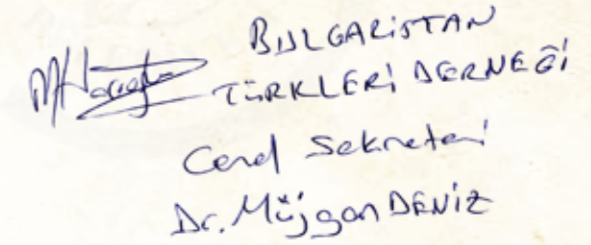 BULGARİSTAN
TÜRKLERİ DERNEĞİ
Genel Sekreteri
Dr. Müjgan DENİZ